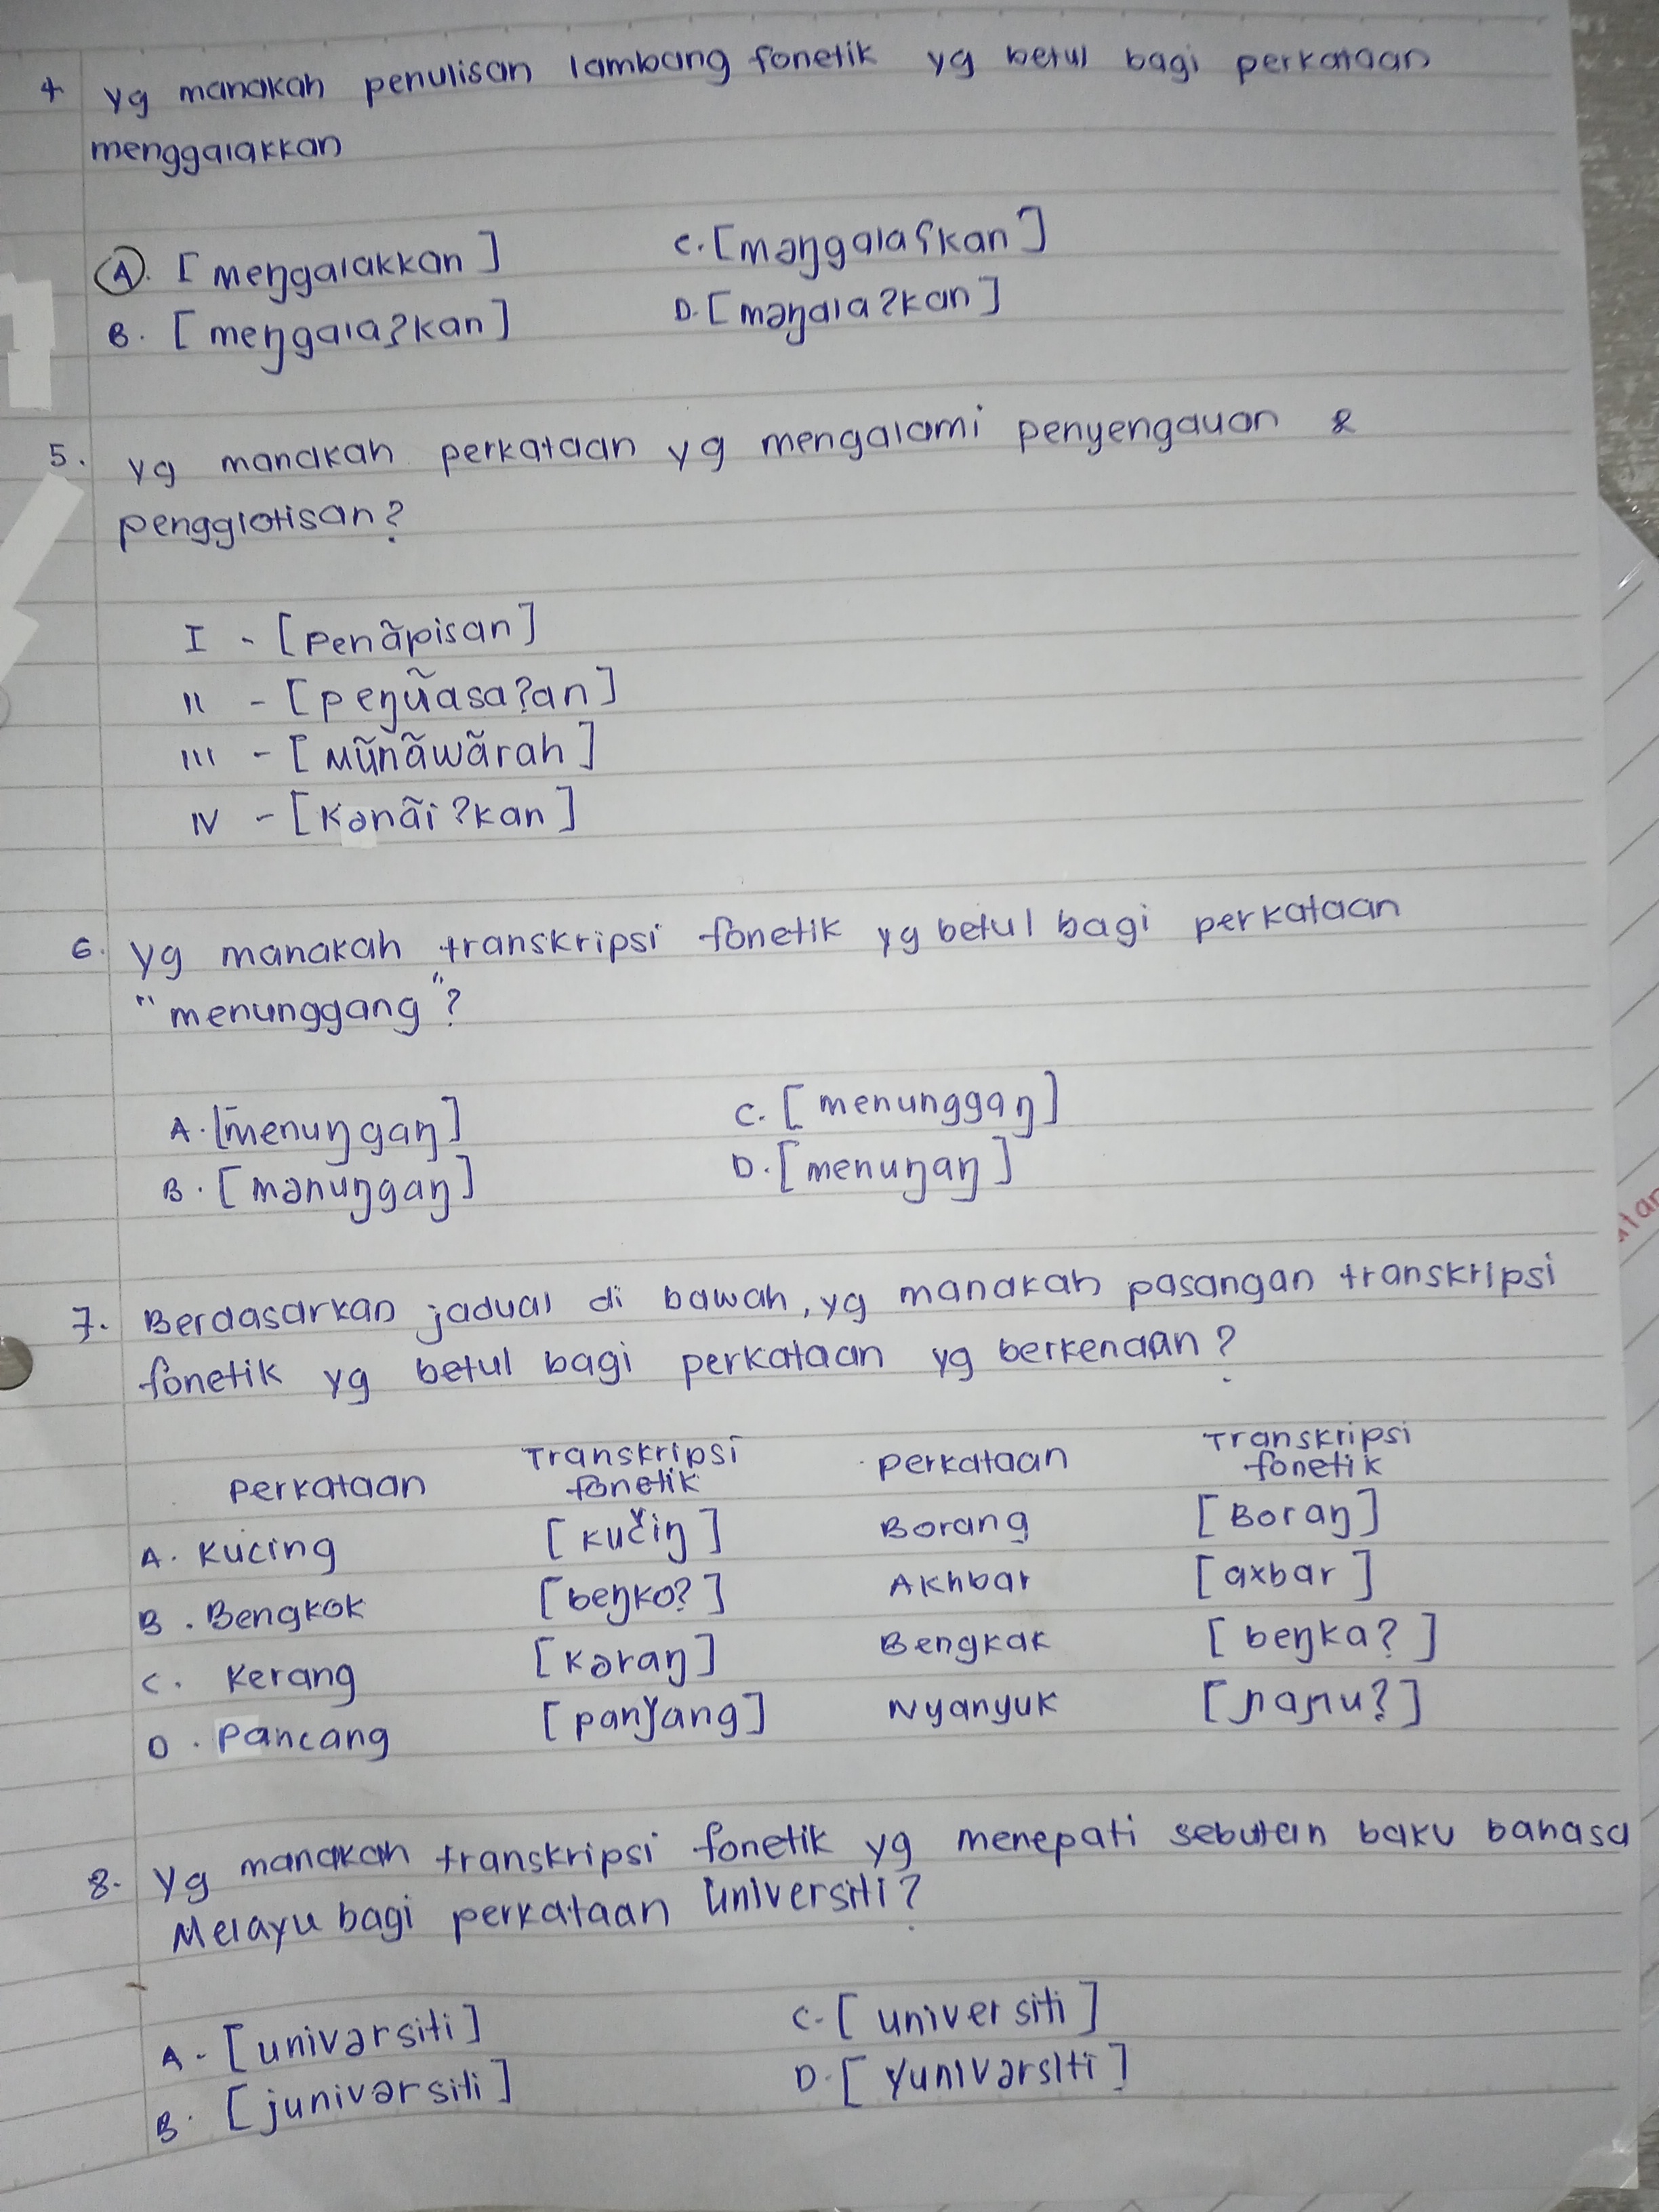 4 yg manakah penulisan lambang fonetik yg betul bagi perkataan
menggalakkan
A. [meŋgalakkan]
C. [məŋgalaʕkan]
B. [meŋgalaʔkan]
D. [məŋalaʔkan]
5. yg manakah perkataan yg mengalami penyengauan &
pengglotisan?
I - [penãpisan]
II - [peŋũasaʔan]
III - [mũnãwãrah]
IV - [kənãiʔkan]
6. yg manakah transkripsi fonetik yg betul bagi perkataan
"menunggang"?
A. [menuŋgaŋ]
C. [menunggaŋ]
B. [mənuŋgaŋ]
D. [menuŋaŋ]
7. Berdasarkan jadual di bawah, yg manakah pasangan transkripsi
fonetik yg betul bagi perkataan yg berkenaan?
Perkataan Transkripsi fonetik Perkataan Transkripsi fonetik
A. Kucing [kučiŋ] Borang [Boraŋ]
B. Bengkok [beŋkoʔ] Akhbar [axbar]
C. Kerang [kəraŋ] Bengkak [beŋkaʔ]
D. Pancang [panǰang] Nyanyuk [ɲaɲuʔ]
8. Yg manakah transkripsi fonetik yg menepati sebutan baku bahasa
Melayu bagi perkataan Universiti?
A - [univərsiti]
C - [universiti]
B. [junivərsiti]
D. [yunivərsiti]